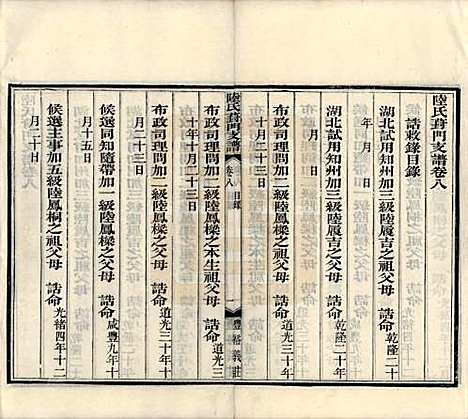 陸氏葑門支譜卷八
誥敕錄目錄
湖北試用知州加三級陸履吉之祖父母 誥命 乾隆二十
年 月 日
湖北試用知州加三級陸履吉之父母 誥命 乾隆二十
年 月 日
布政司理問加二級陸鳳樑之祖父母 誥命 道光三十年
十月二十三日
陸氏葑門支譜 卷八 目錄 一 豐裕義莊
布政司理問加二級陸鳳樑之本生祖父母 誥命 道光三
十年十月二十三日
布政司理問加二級陸鳳樑之父母 誥命 道光三十年十
月二十三日
候選同知隨帶加一級陸鳳樑之父母 誥命 咸豐九年十
月十五日
候選主事加五級陸鳳桐之祖父母 誥命 光緒四年十二
月二十日